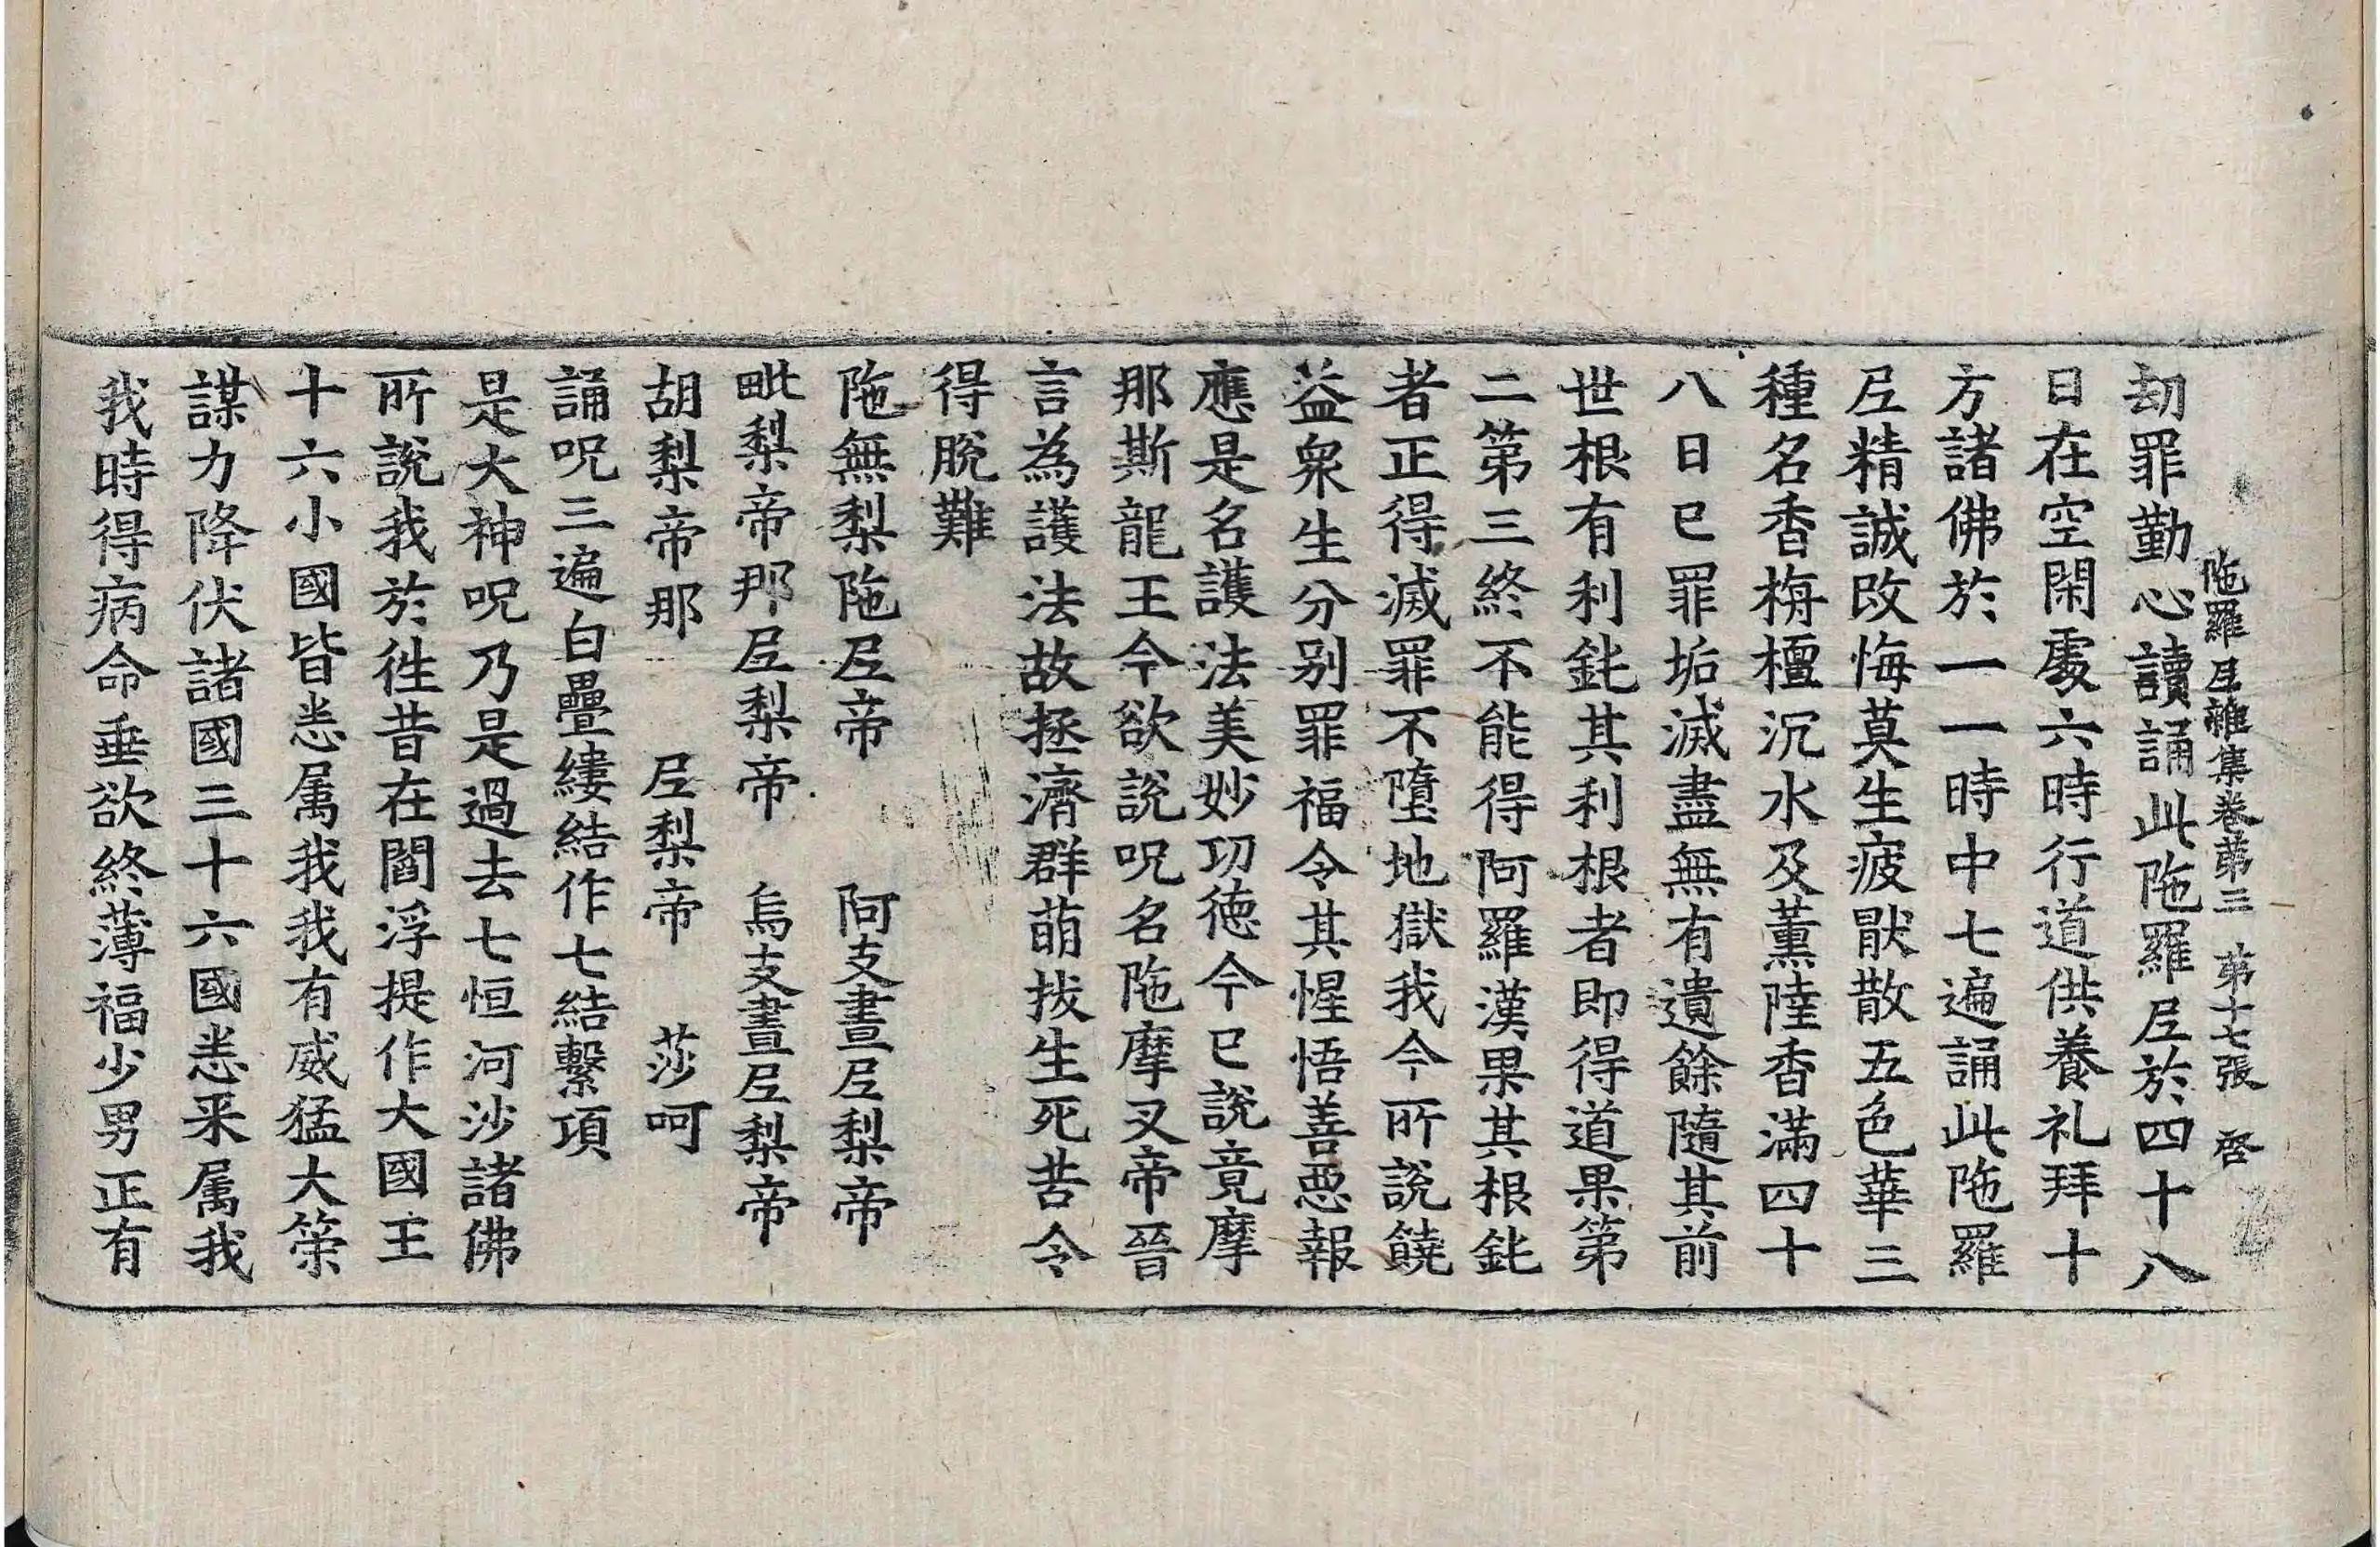 陁羅𡰱雜集卷苐三　苐十七張　啓
刼罪勤心讀誦此陁羅𡰱於四十八
日在空閑處六時行道供養礼拜十
方諸佛於一一時中七遍誦此陁羅
𡰱精誠改悔莫生疲猒散五色華三
種名香栴檀沉水及薰陸香滿四十
八日已罪垢滅盡無有遺餘隨其前
世根有利鈍其利根者即得道果第
二第三終不能得阿羅漢果其根鈍
者正得滅罪不墮地獄我今所說饒
益衆生分别罪福令其惺悟善惡報
應是名護法美妙㓛德今已說竟摩
那斯龍王今欲說呪名陁摩叉帝晉
言為護法故拯濟群萌拔生死苦令
得脫難
陁無梨陁𡰱帝　阿支晝𡰱梨帝
毗梨帝那𡰱梨帝　烏支晝𡰱梨帝
胡梨帝那　𡰱梨帝　莎呵
誦呪三遍白疊縷結作七結繫項
是大神呪乃是過去七恒河沙諸佛
所說我於徃昔在閻浮提作大國王
十六小國皆悉属我我有威猛大策
謀力降伏諸國三十六國悉来属我
我時得病命垂欲終薄福少男正有